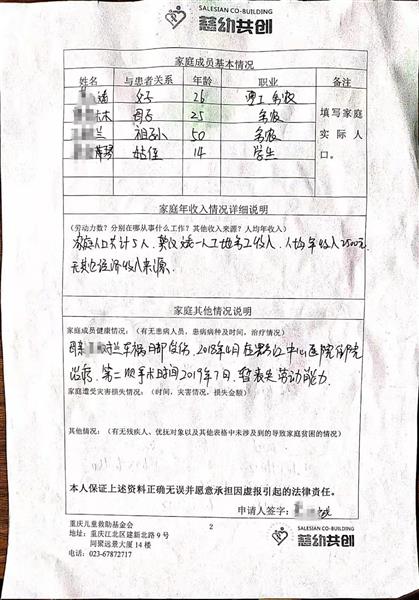 SALESIAN CO-BUILDING
慈幼共创
家庭成员基本情况
姓名 与患者关系 年龄 职业 备注
父子 26 理工务农
母子 25 务农
兰 祖孙 50 务农
姑侄 14 学生
填写家庭实际人口。
家庭年收入情况详细说明
(劳动力数?分别在哪从事什么工作?其他收入来源?人均年收入)
家庭人口共计5人,一人工地务工收入,人均年收入2500元
无其它经济收入来源。
家庭其他情况说明
家庭成员健康情况:(有无患病人员,患病病种及时间,治疗情况)
车祸,2018年4月在中心医院住院
治疗,第二次手术时间2019年7月,暂丧失劳动能力。
家庭遭受灾害损失情况:(时间,灾害情况,损失金额)
其他情况:(有无残疾人、优抚对象以及其他表格中未涉及到的导致家庭贫困的情况)
本人保证上述资料正确无误并愿意承担因虚报引起的法律责任。
申请人签字:
重庆儿童救助基金会
地址:重庆江北区建新北路9号
同聚远景大厦14楼
电话:023-67872717
2
SALESIAN CO-BUILDING
慈幼共创